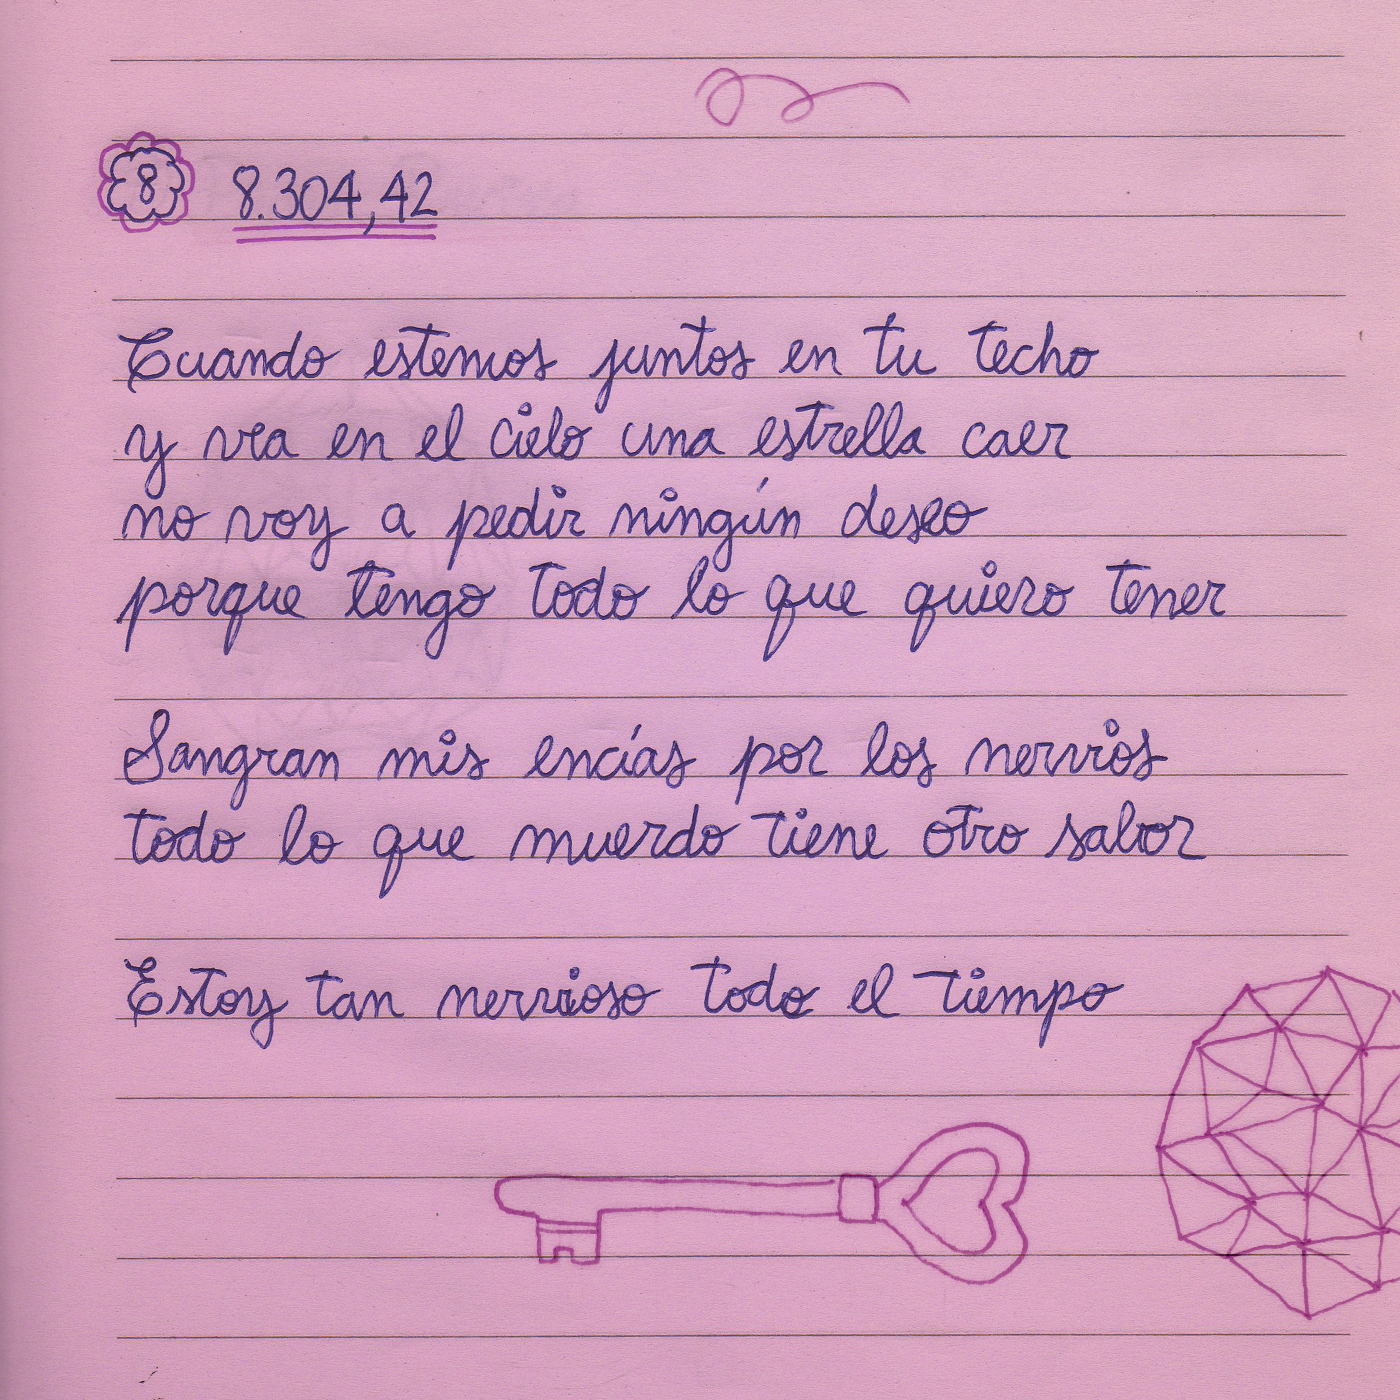 8 8.304,42
Cuando estemos juntos en tu techo
y vea en el cielo una estrella caer
no voy a pedir ningún deseo
porque tengo todo lo que quiero tener
Sangran mis encías por los nervios
todo lo que muerdo tiene otro sabor
Estoy tan nervioso todo el tiempo